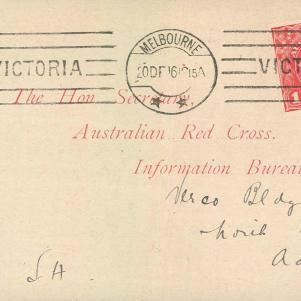 MELBOURNE
VICTORIA 20DE16 15A VICT
The Hon. Secretary,
Australian Red Cross.
Information Burea
Verco Bldg
North
Ad
SA